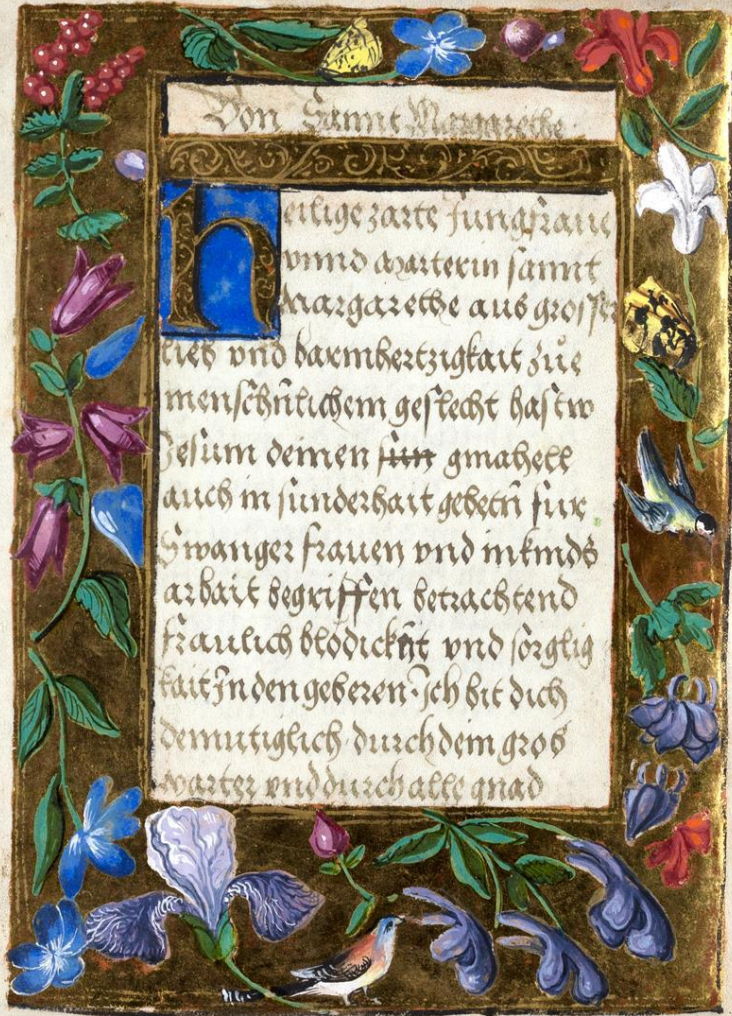 Von Sannt Margarethe
Heilige zarte Jungfraue
vnnd Marterin sannt
Margarethe aus grosser
lieb vnd barmhertzigkait zue
menschñlichem geslecht hastw
Jesum deinen sun gmahell
auch in sunderhait gebetñ fur
Swanger frauen vnd in kinds
arbait begriffen betrachtend
fraulich blödickñt vnd sorglig
kait In den geberen · Ich bit dich
demutiglich durch dein gros
marter vnd durch alle gnad